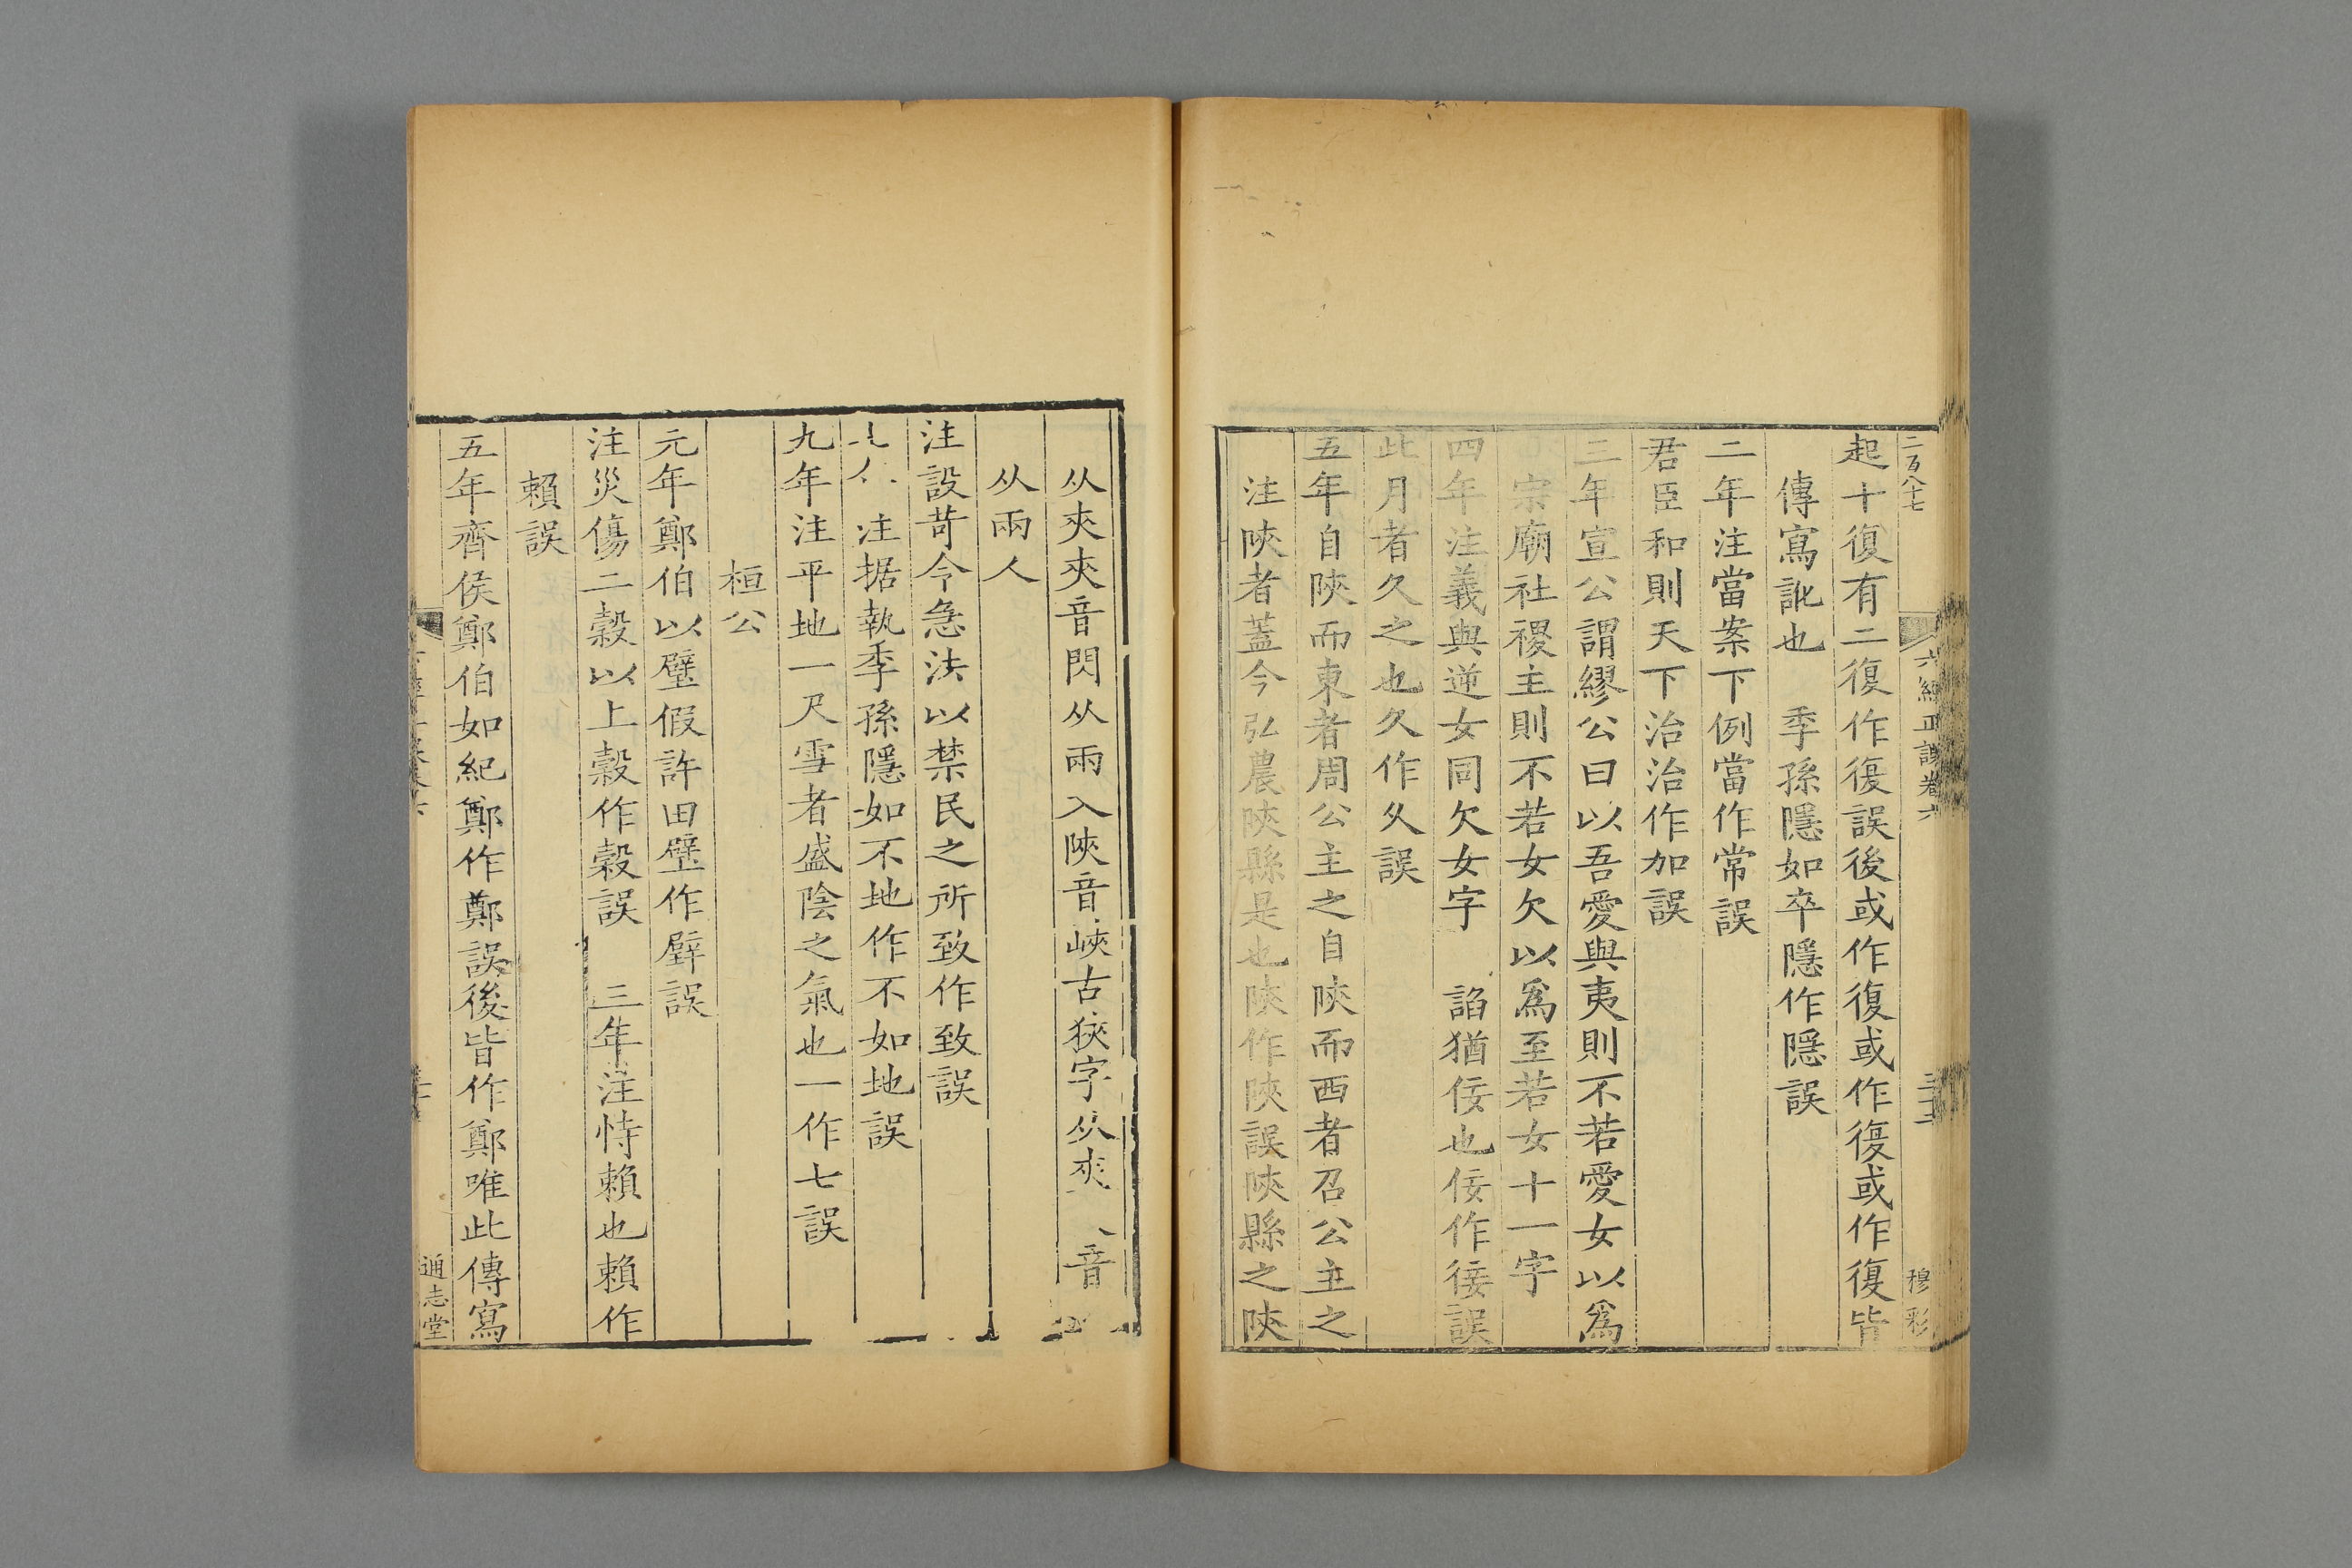 二百八十七
六經正誤卷六
穆彩
起十復有二復作復誤後或作復或作復或作復皆
傳寫訛也 季孫隱如卒隱作隱誤
二年注當案下例當作常誤
君臣和則天下治治作加誤
三年宣公謂繆公曰以吾愛與夷則不若愛女以爲
宗廟社稷主則不若女欠以爲至若女十一字
四年注義與逆女同欠女字 諂猶佞也佞作倿誤
此月者久之也久作夂誤
五年自陜而東者周公主之自陜而西者召公主之
注陜者蓋今弘農陜縣是也陜作陜誤陜縣之陜
从夾夾音閃从兩入陜音峽古狹字从夾 音
从兩人
注設苛令急法以禁民之所致作致誤
注据執季孫隱如不地作不如地誤
九年注平地一尺雪者盛陰之氣也一作七誤
桓公
元年鄭伯以璧假許田璧作壁誤
注災傷二穀以上穀作穀誤 三年注恃賴也賴作
賴誤
五年齊侯鄭伯如紀鄭作鄭誤後皆作鄭唯此傳寫
通志堂